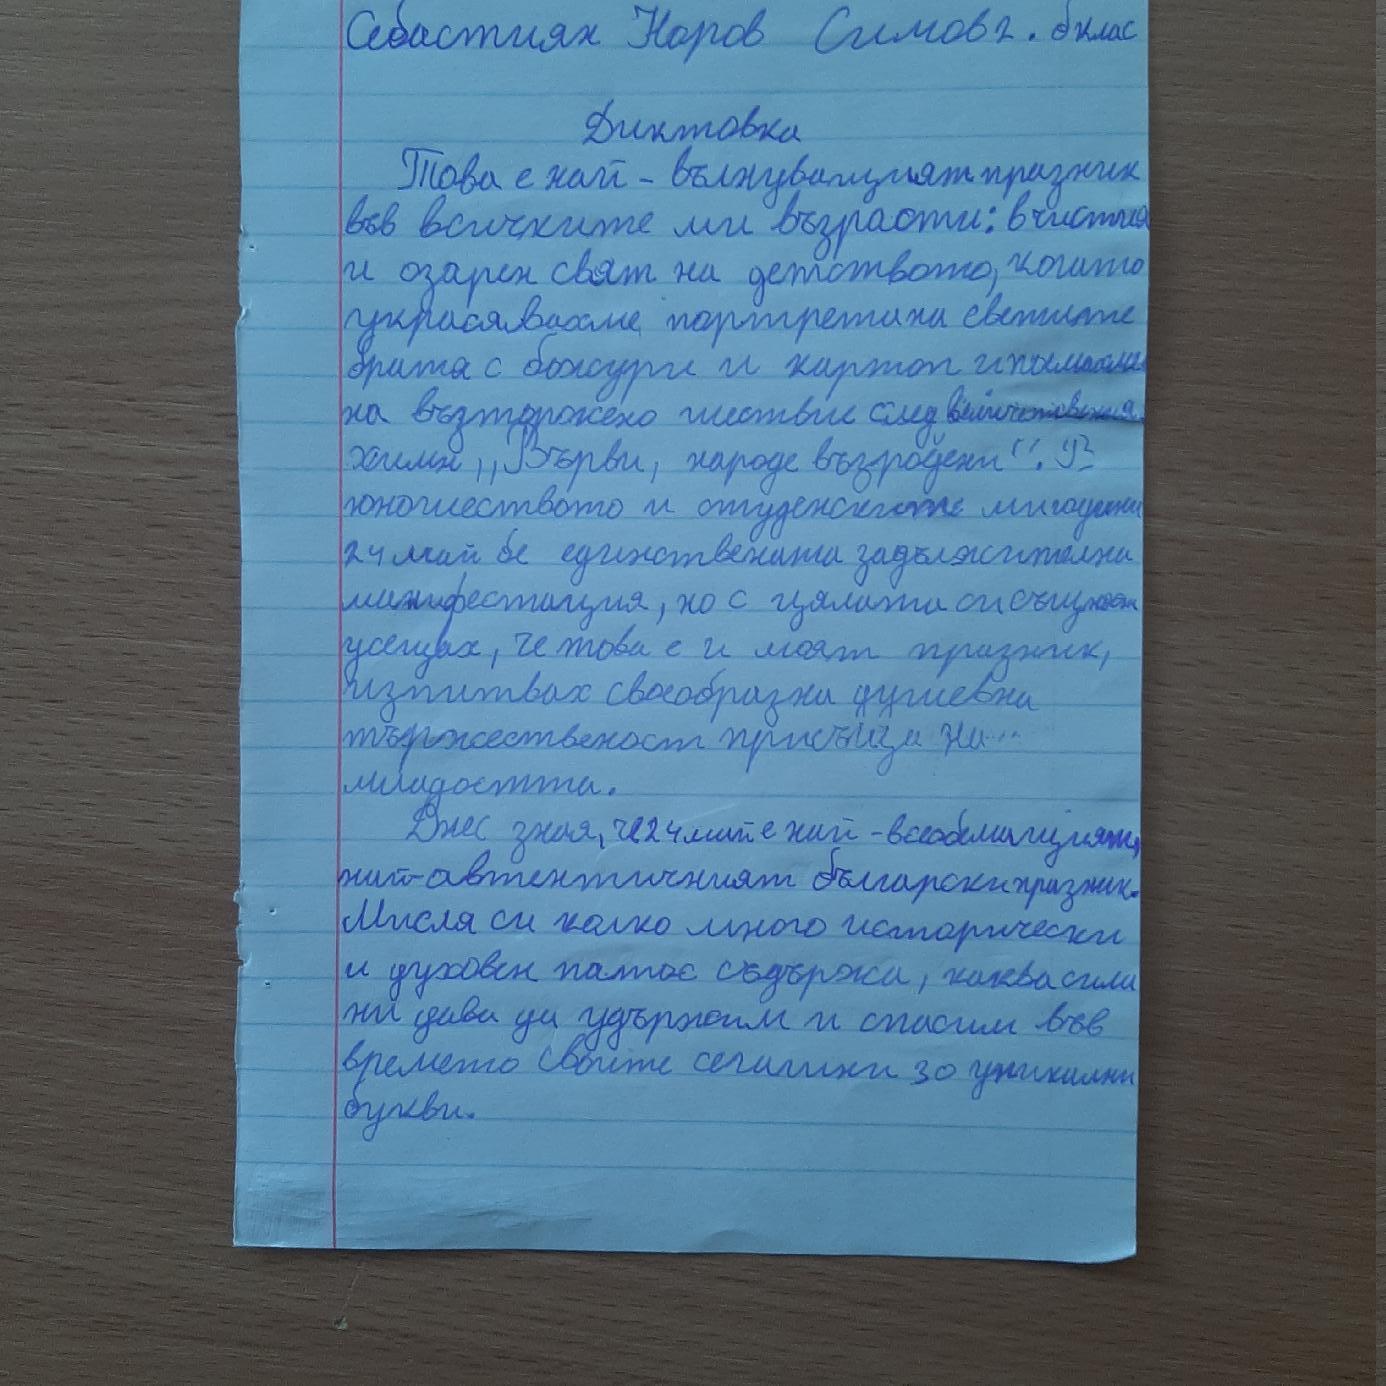 Себастиян Наров Симов 2. б клас
Диктовка
Това е най - вълнуващият празник
във всичките ми възрасти: в чистия
и озарен свят на детството, когато
украсявахме портрета на светите
братя с божури и картон и
на възторжено шествие след величествения
химн ,,Върви, народе възродени". В
юношеството и студенските ми години
24 май бе единствената задължителна
манифестация, но с цялата си същност
усещах, че това е и моят празник,
изпитвах своеобразна душевна
тържественост присъща на
младостта.
Днес зная, че 24 май е най - всеобемащият,
най-автентичният български празник.
Мисля си колко много исторически
и духовен патос съдържа, каква сила
ни дава да удържим и спасим във
времето своите сегашни 30 уникални
букви.